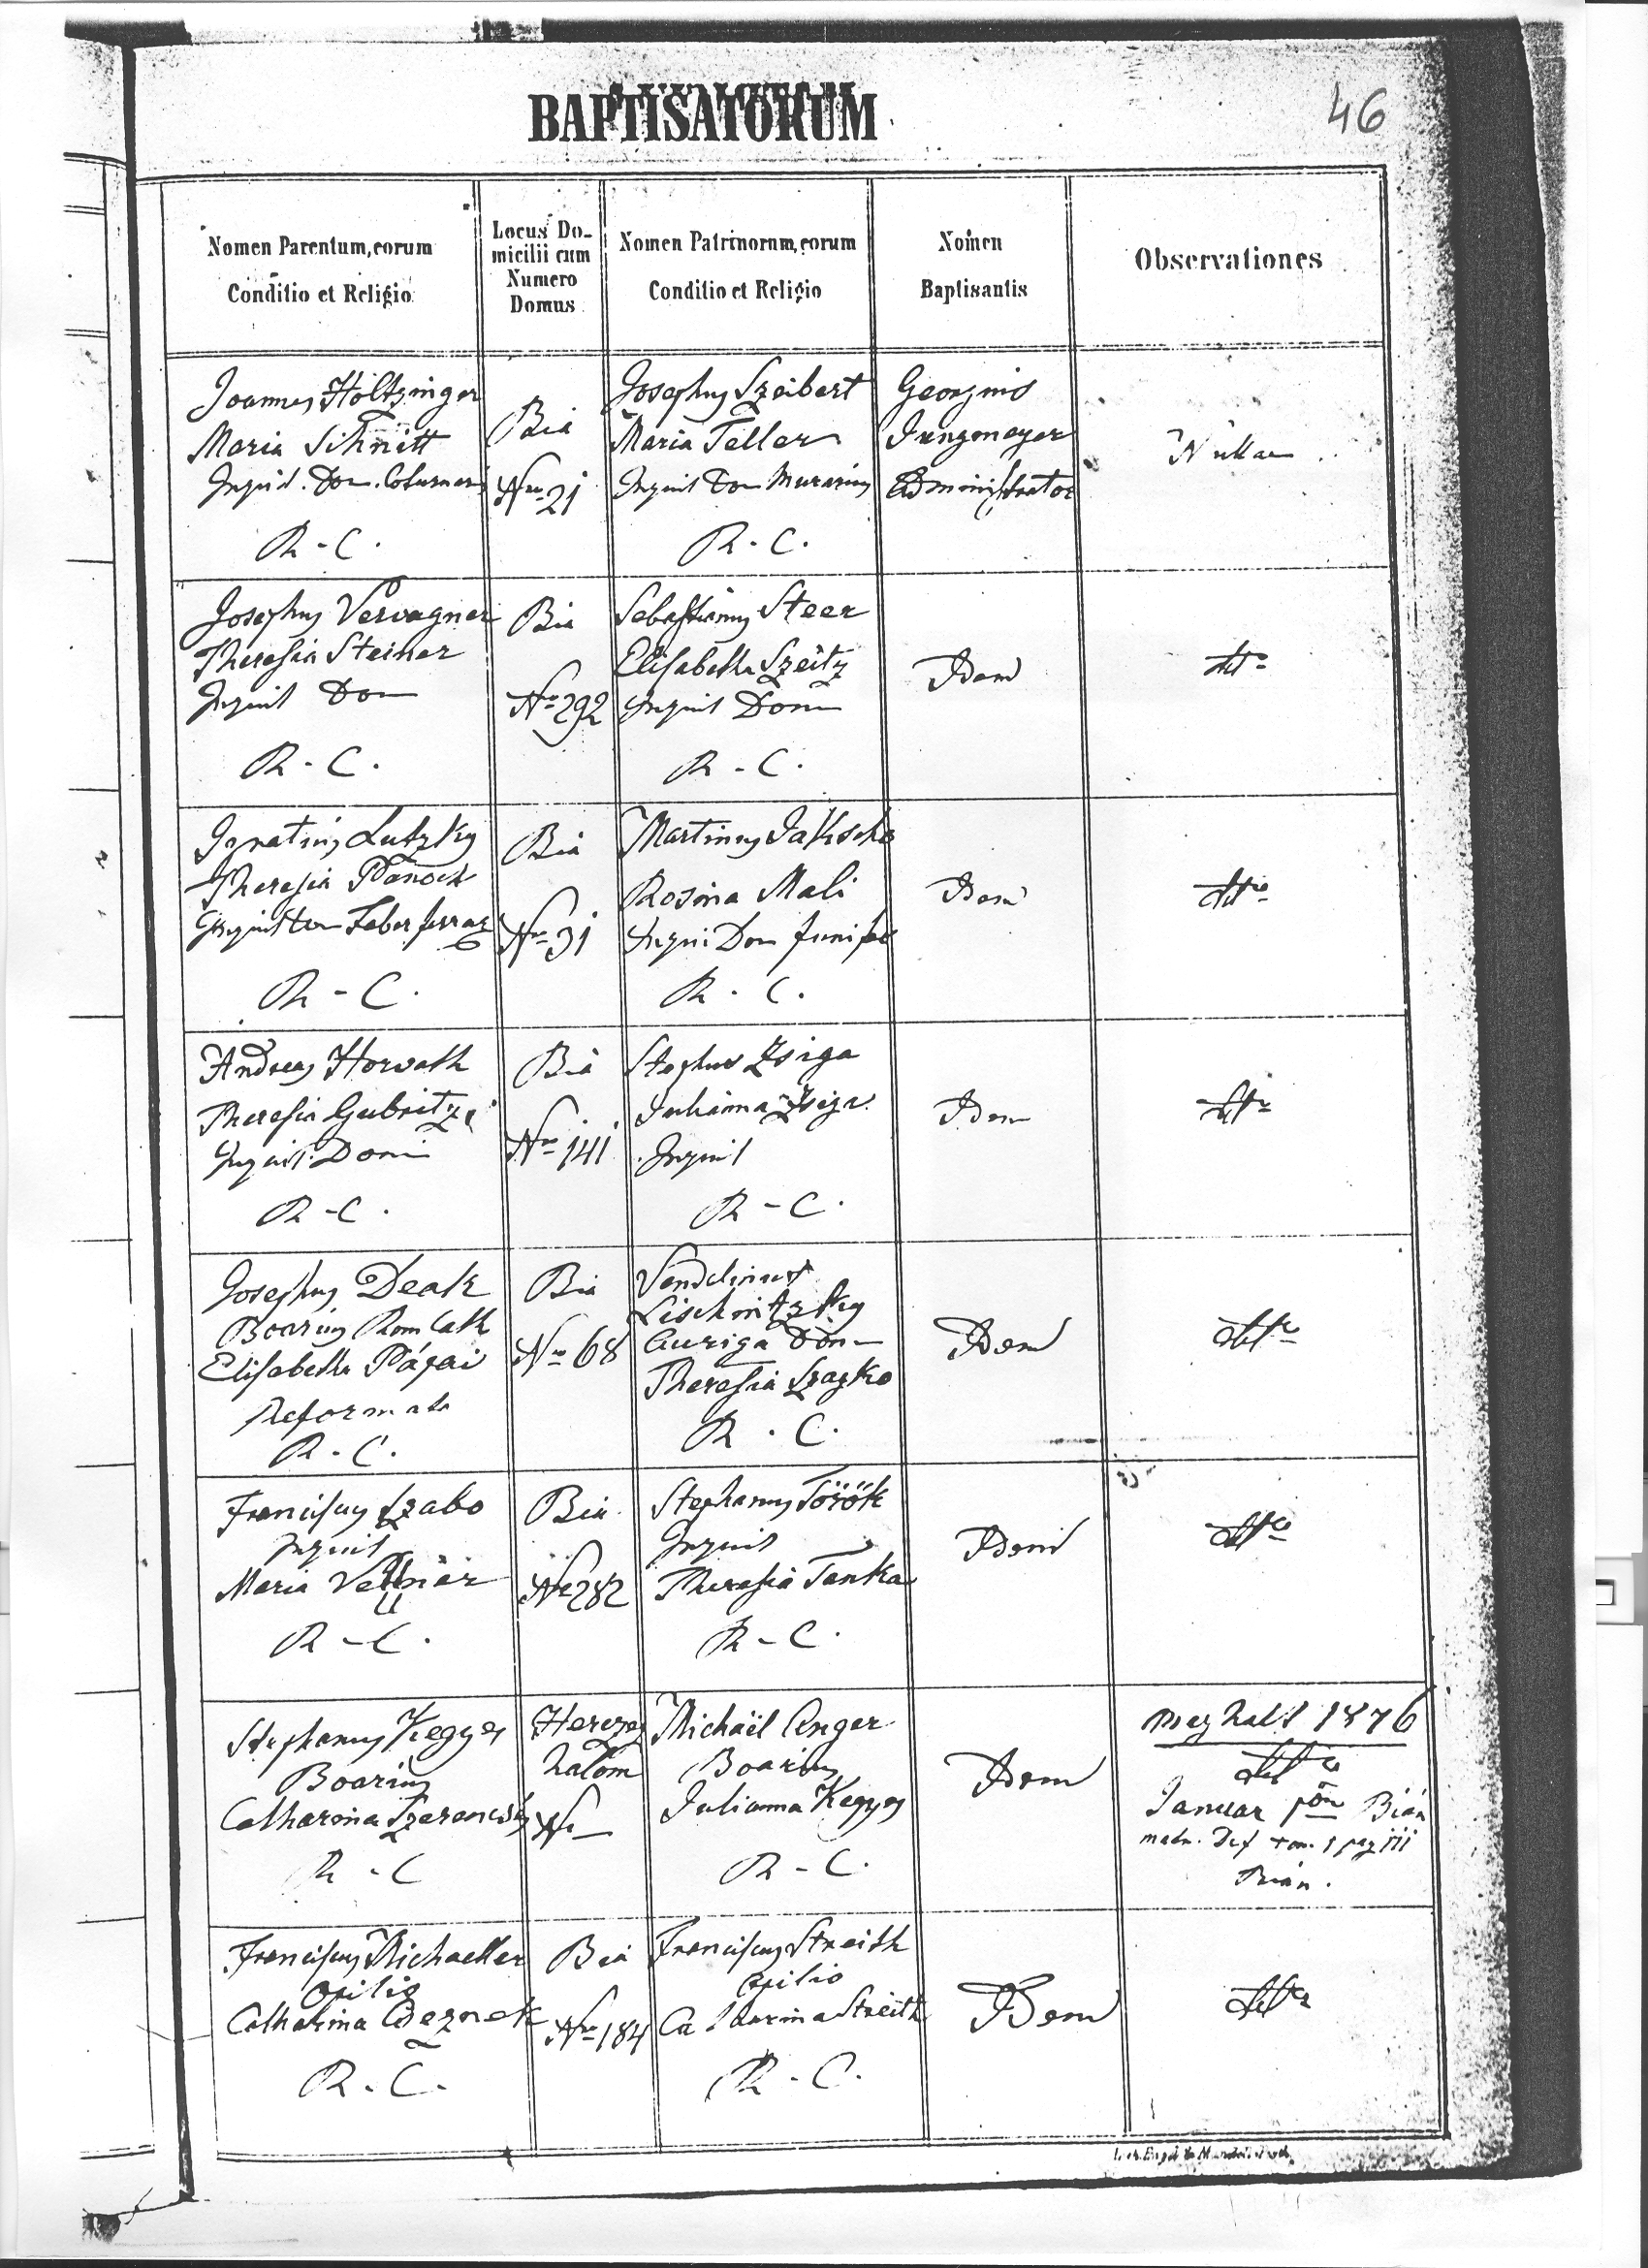 BAPTISATORUM
46
Nomen Parentum, eorum
Conditio et Religio
Locus Do-
micilii cum
Numero
Domus
Nomen Patrinorum, eorum
Conditio et Religio
Nomen
Baptisantis
Observationes
Joannes Höltzinger
Maria Schnitt
Inquil. Dom.
R - C.
Bia
Nro 21
Josephus Szeibert
Maria Teller
Inquil Dom Murarius
R. C.
Georgius
Jungmayer
Administrator
Nullae
Josephus Vervagner
Theresia Steiner
Inquil Dom
R - C.
Bia
No 292
Sebastianus Steer
Elisabetha Szeitz
Inquil Dom
R - C.
Idem
dtto
Ignatius Lutzky
Theresia
Inquil Dom Faber ferrar
R - C.
Bia
Nro 31
Martinus Jakschs
Rosina Mali
Inqui Dom
R. C.
Idem
dtto
Andreas Horvath
Theresia
Inquil. Dom
R - C.
Bia
Nro 141
Stephus Zsiga
Julianna Zsiga
Inquil
R - C.
Idem
dtto
Josephus Deak
Boarius Rom Cath
Elisabetha Pápai
Reformata
R - C.
Bia
Nro 68
Vendelinus
Lischnitzky
Auriga Dom
Theresia Szazko
R. C.
Idem
dtto
Franciscus Szabo
Inquil
Maria
R - C.
Bia
Nro 282
Stephanus Török
Inquil
Theresia Tanka
R - C.
Idem
dtto
Stephanus Kegyes
Boarius
Catharina
R - C
Herczeg
halom
Nro —
Michaël Unger
Boarius
Julianna Kegyes
R - C.
Idem
meghalt 1876
dtto
Januar Bián
matr. Def tom. 1 pag 111
Bián.
Franciscus Michaeller
Opilio
Catharina Cseznek
R. C.
Bia
Nro 184
Franciscus Streith
Opilio
Catharina Streith
R - C.
Idem
dtto